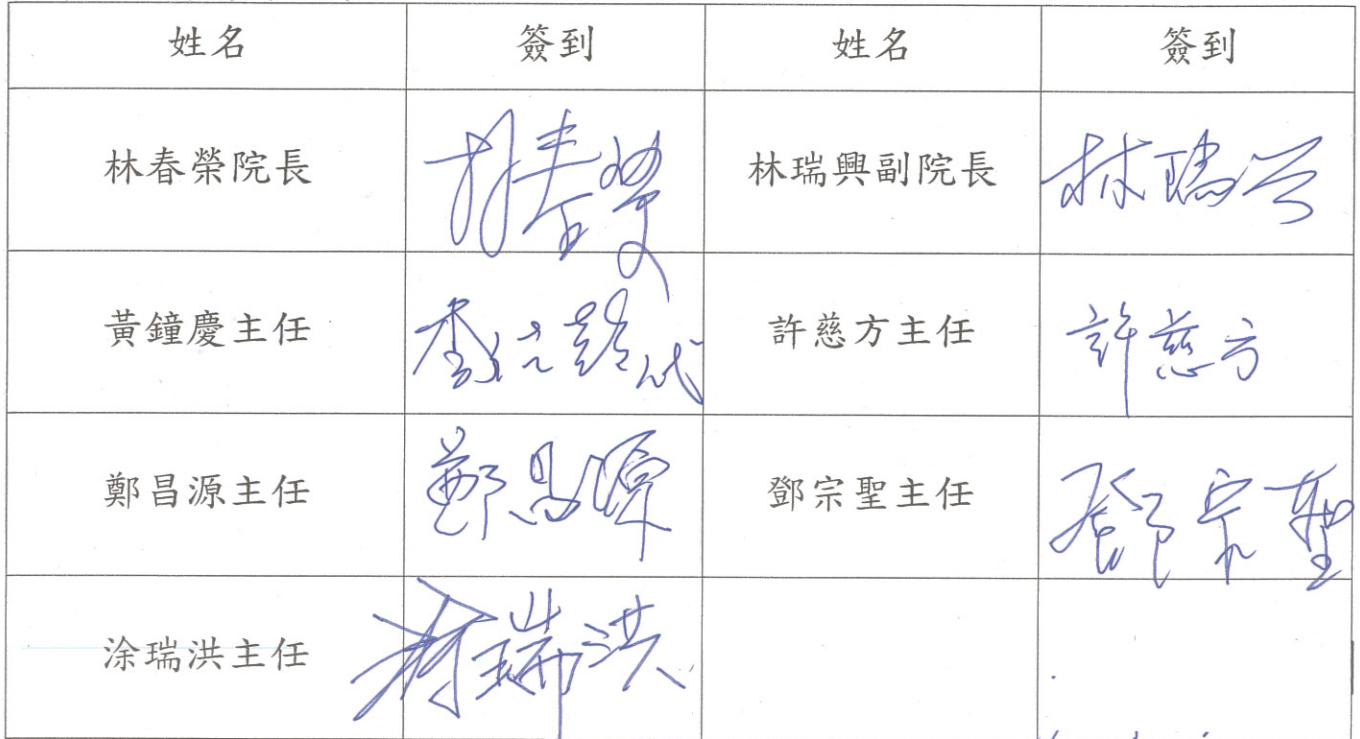 姓名 簽到 姓名 簽到
林春榮院長 林春榮 林瑞興副院長 林瑞興
黃鐘慶主任 代 許慈方主任 許慈方
鄭昌源主任 鄭昌源 鄧宗聖主任 鄧宗聖
涂瑞洪主任 涂瑞洪